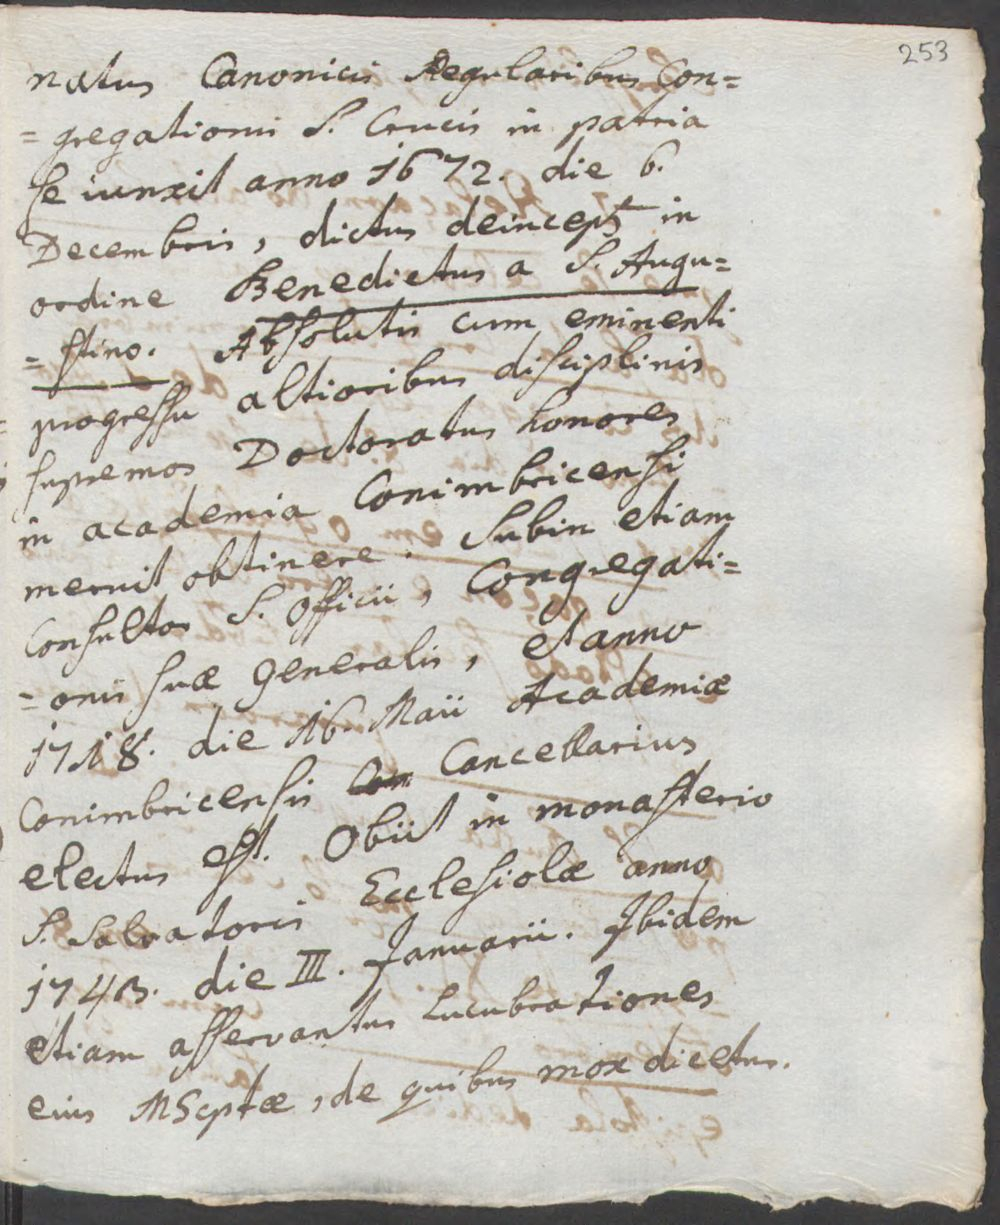 253
natus Canonicis Regularibus Con=
=gregationis S. Crucis in patria
se iunxit anno 1672. die 6.
Decembris, dictus deinceps in
ordine Benedictus a S. Augu=
=stino. Absolutis cum eminenti
progressu altioribus disciplinis
supremos Doctoratus honores
in academia Conimbricensi
meruit obtinere. Subin etiam
Consultor S. Officii, Congregati=
=onis suæ Generalis, et anno
1718. die 16. Maii Academiæ
Conimbricensis Cancellarius
electus est. Obiit in monasterio
S. Salvatoris Ecclesiolæ anno
174 die III. Januarii. Ibidem
etiam asservantur Lucubrationes
eius MSCptæ, de quibus mox dicetur.